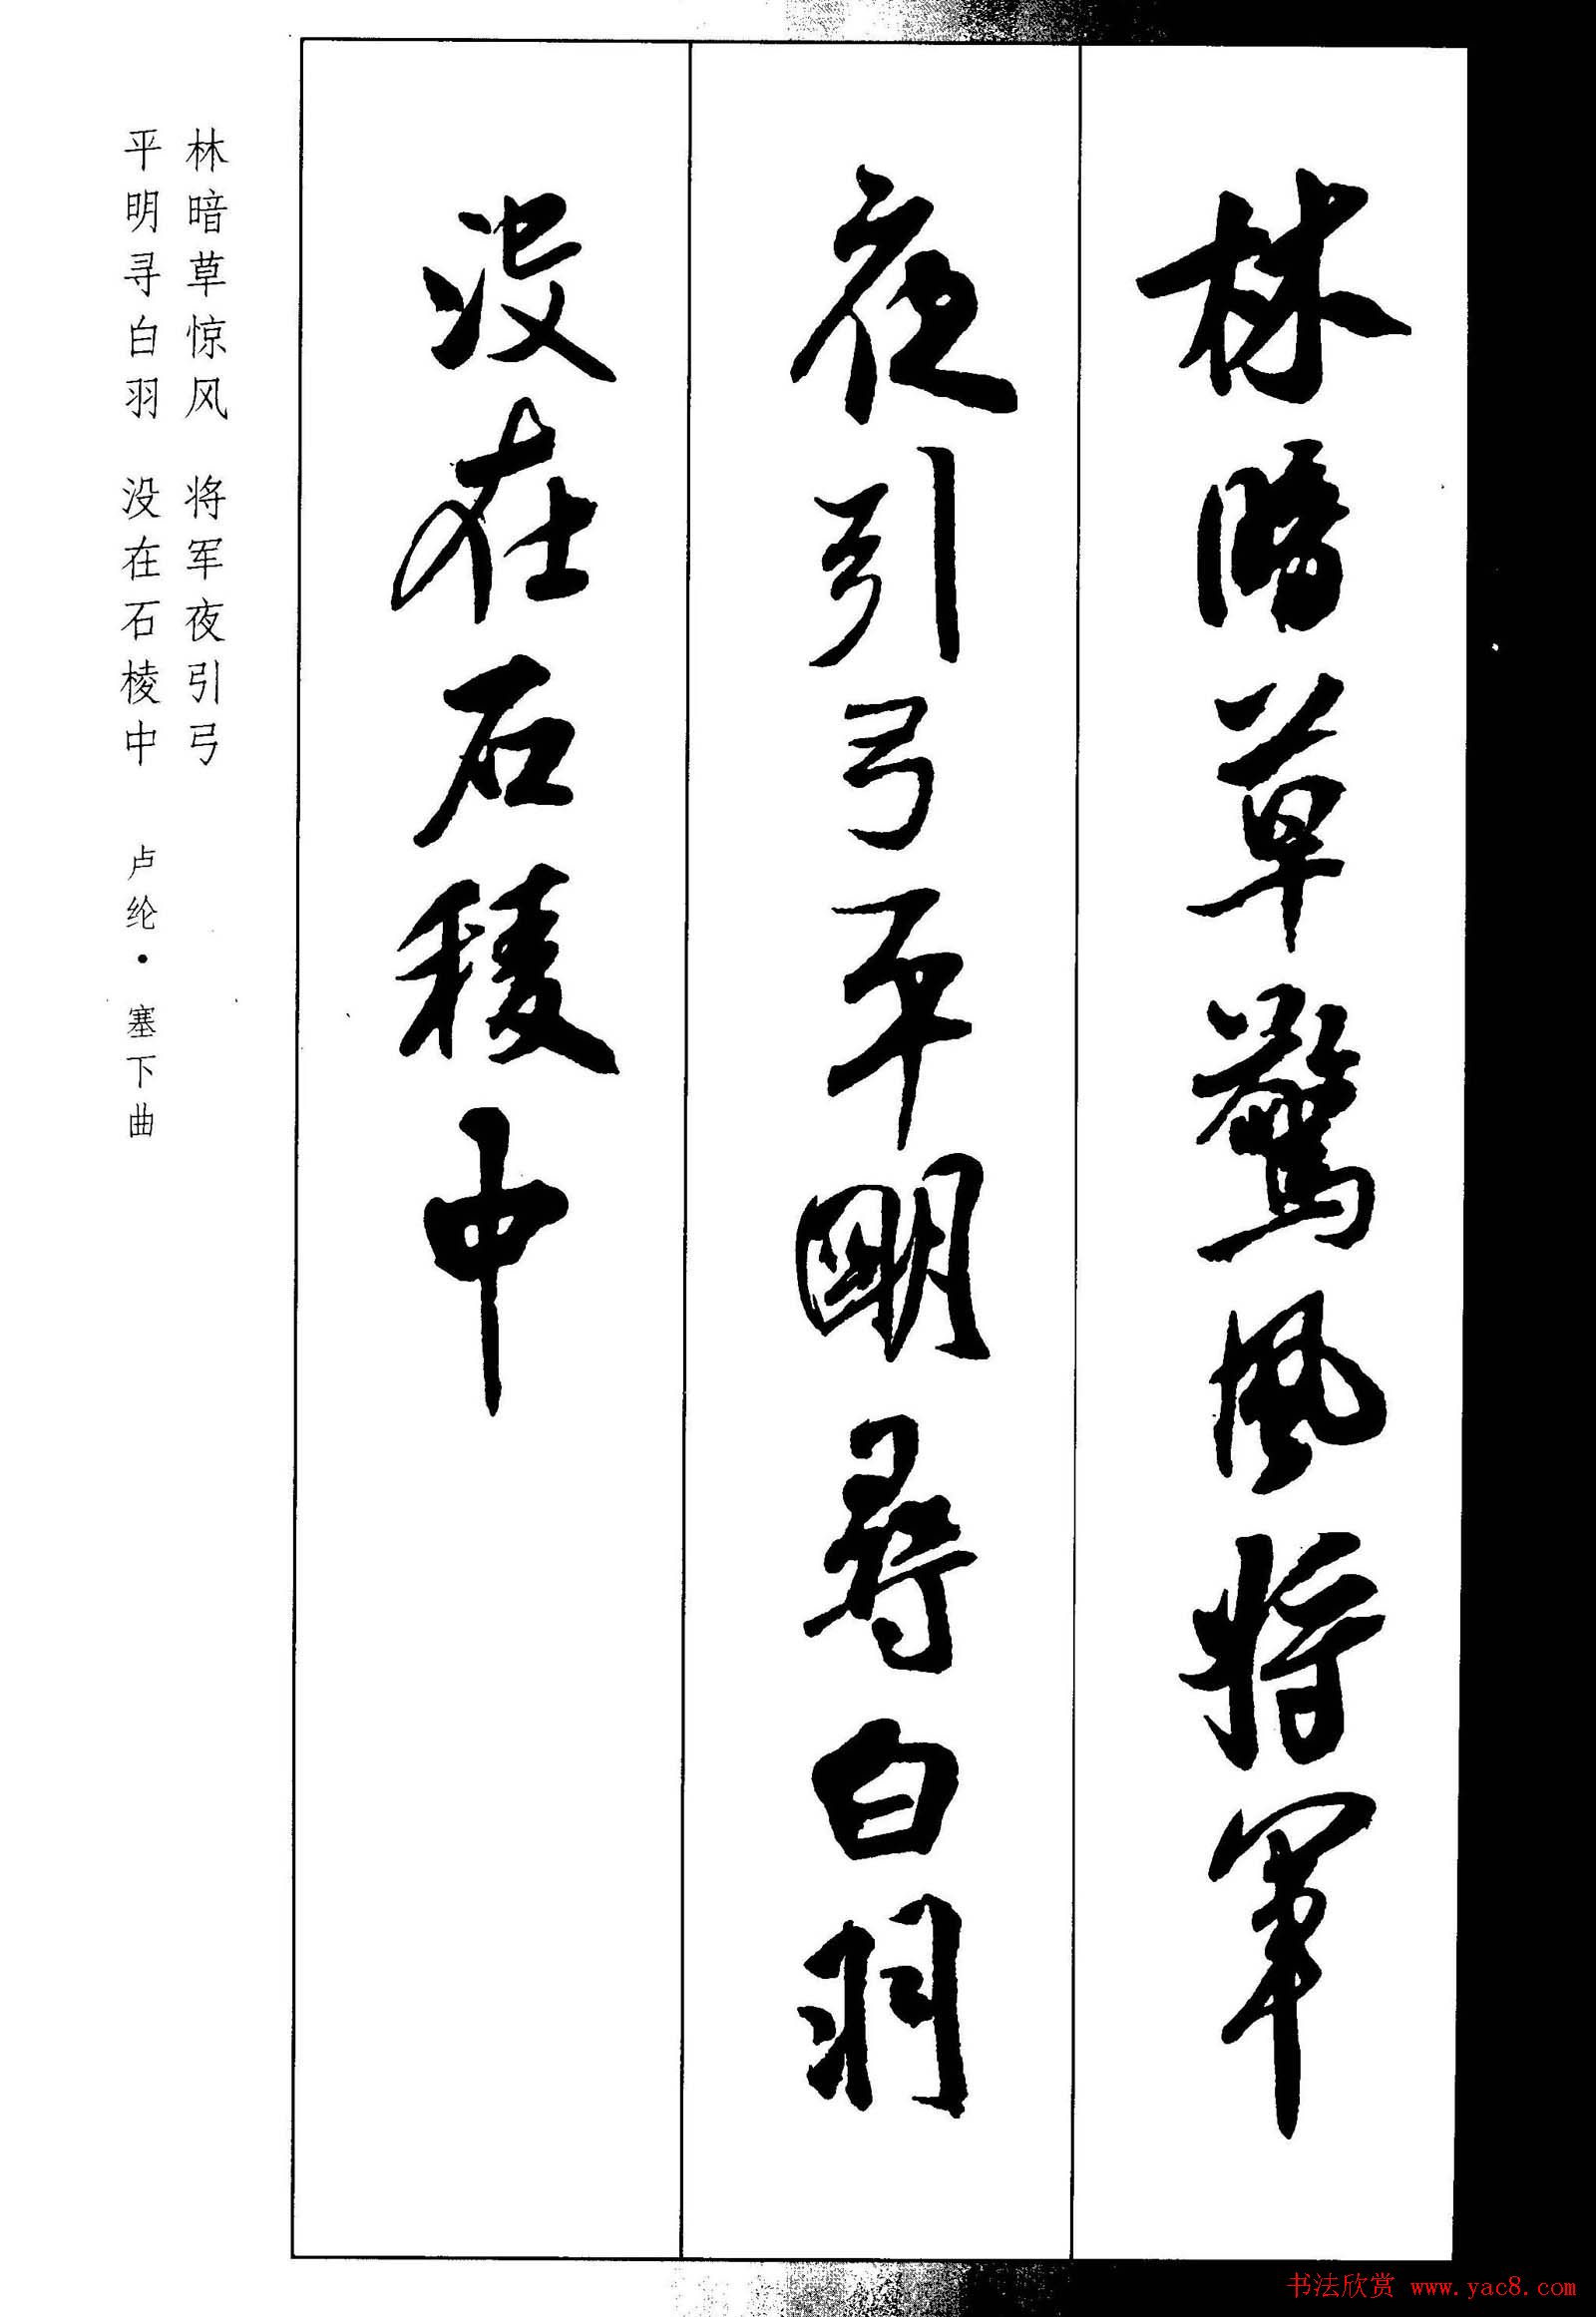 林暗草驚風将軍
夜引弓平明尋白羽
没在石稜中
林暗草惊风 将军夜引弓
平明寻白羽 没在石棱中 卢纶·塞下曲
书法欣赏 www.yac8.com